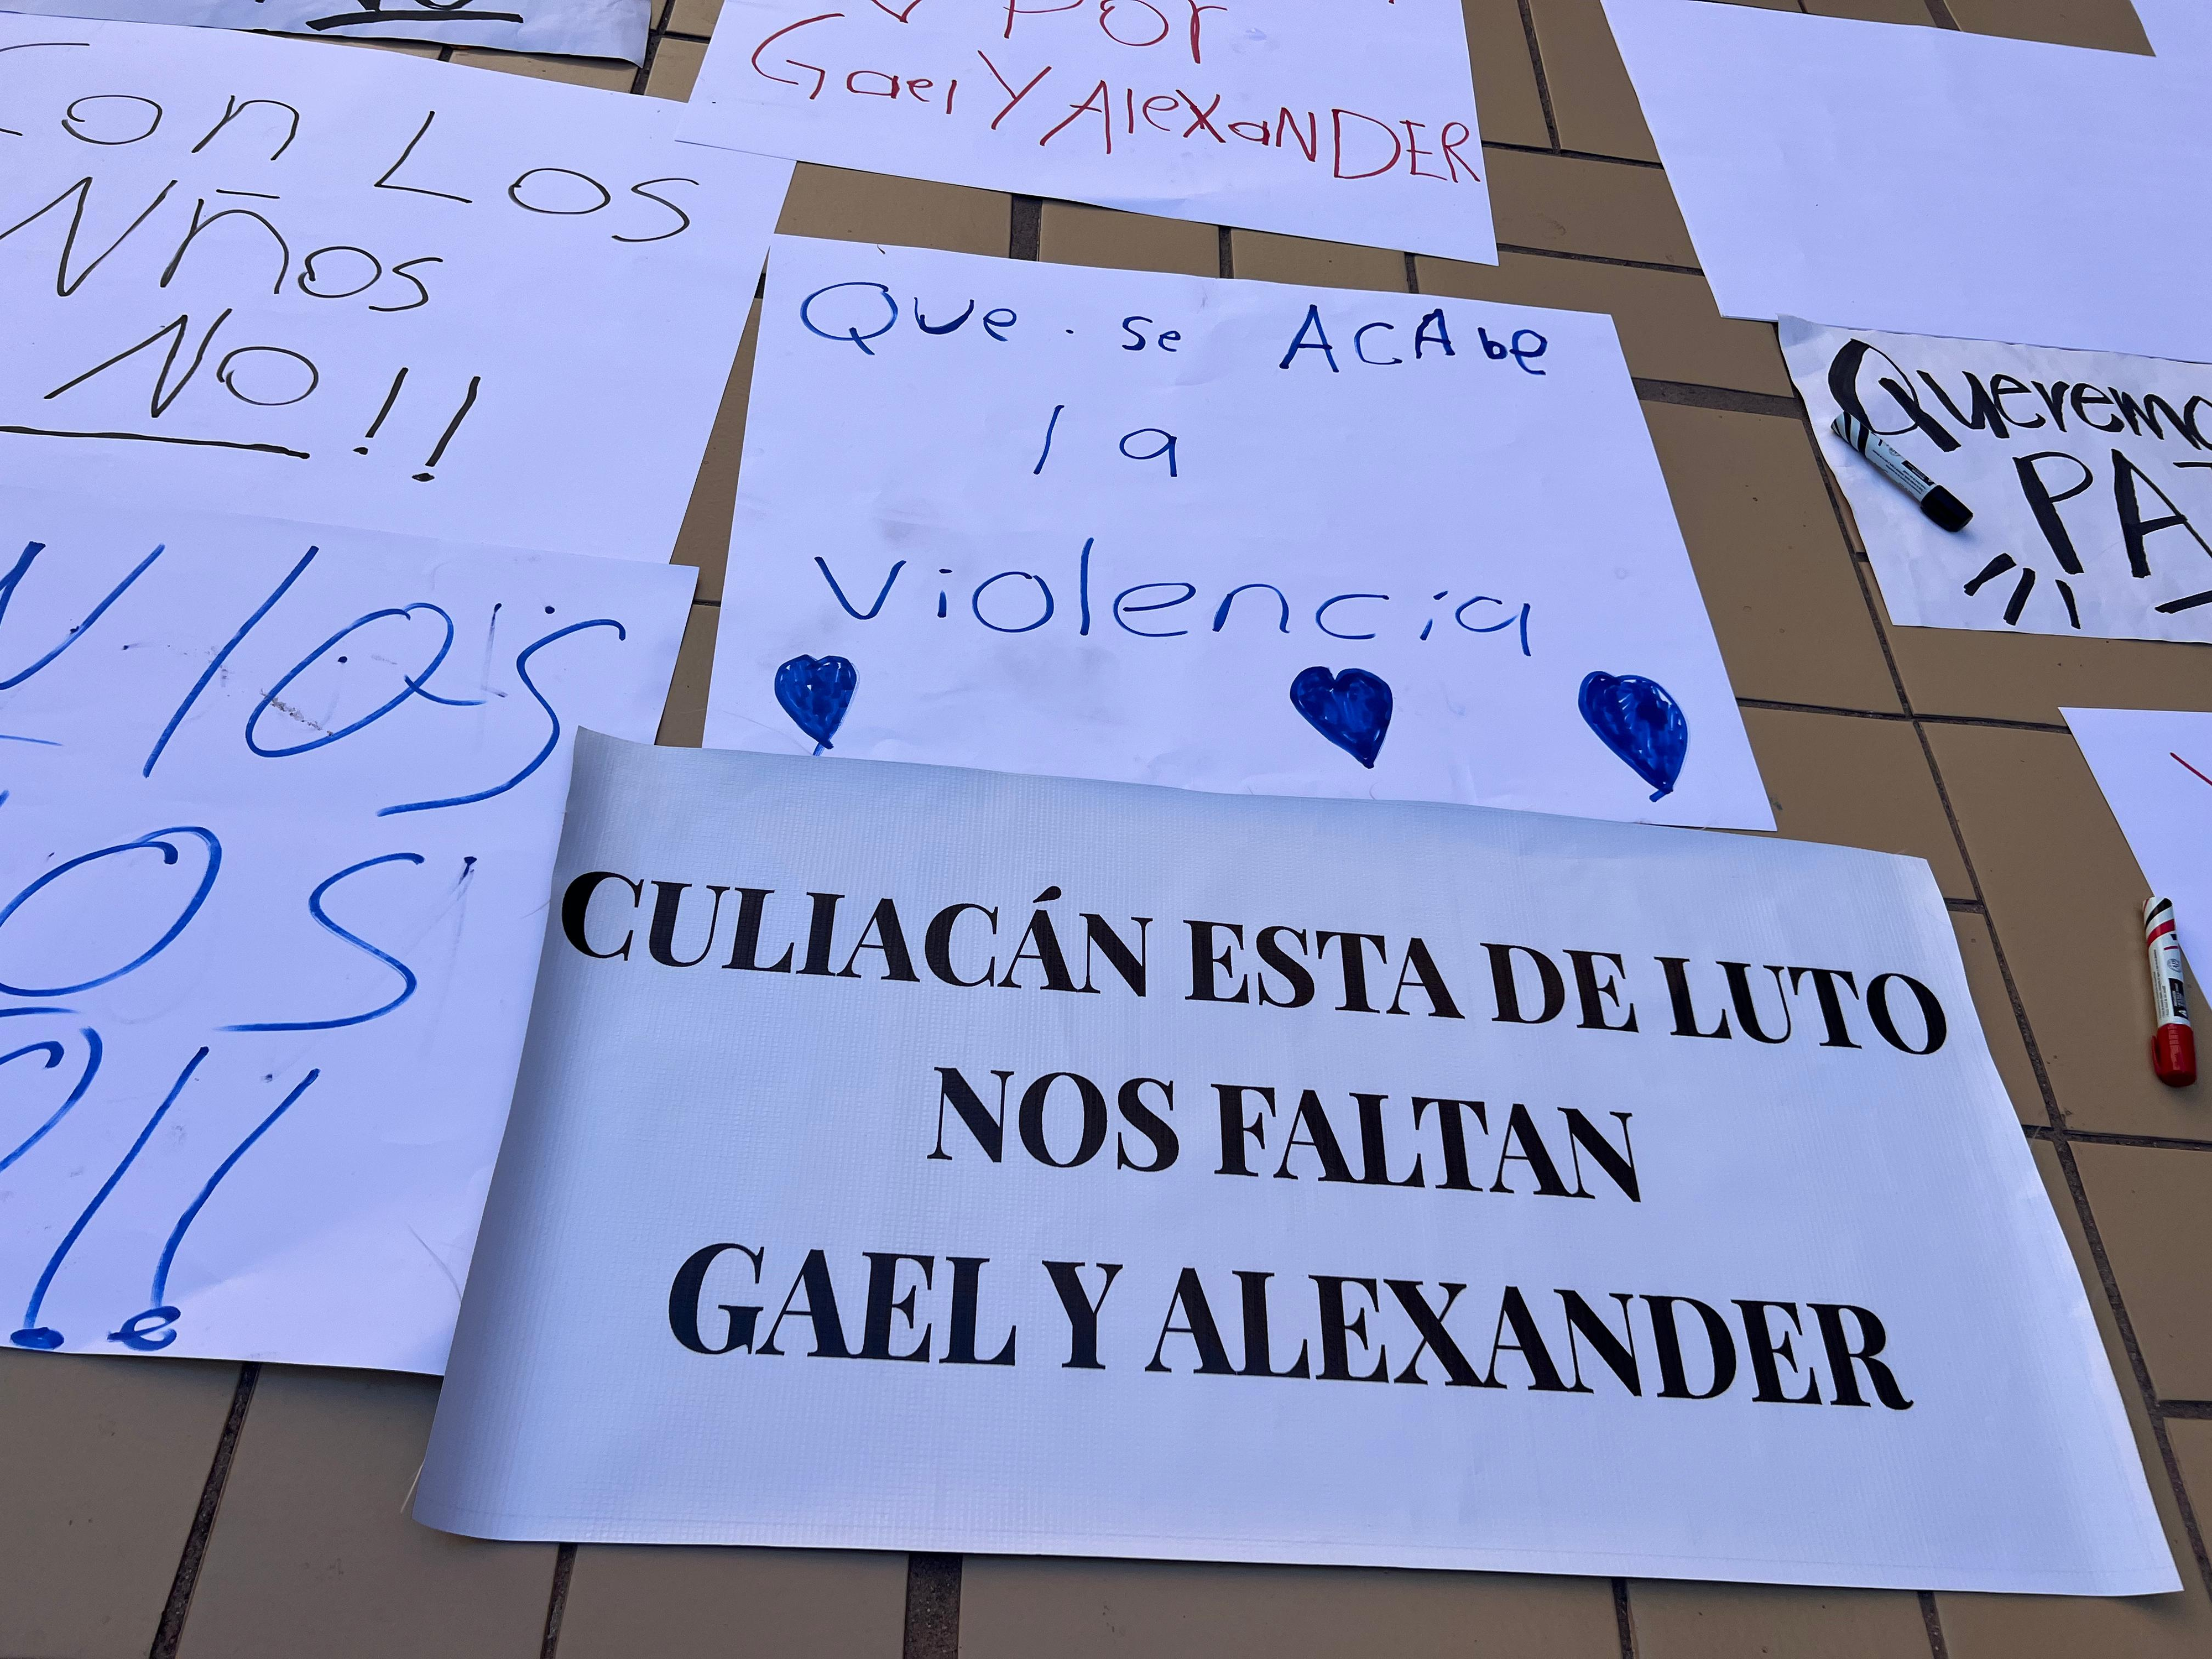 NO
Con Los
Nños
NO!!
Por
Gael Y AlexaNDER
Que se ACAbe
la
violencia
PAZ
los
OS
!!
CULIACÁN ESTA DE LUTO
NOS FALTAN
GAEL Y ALEXANDER